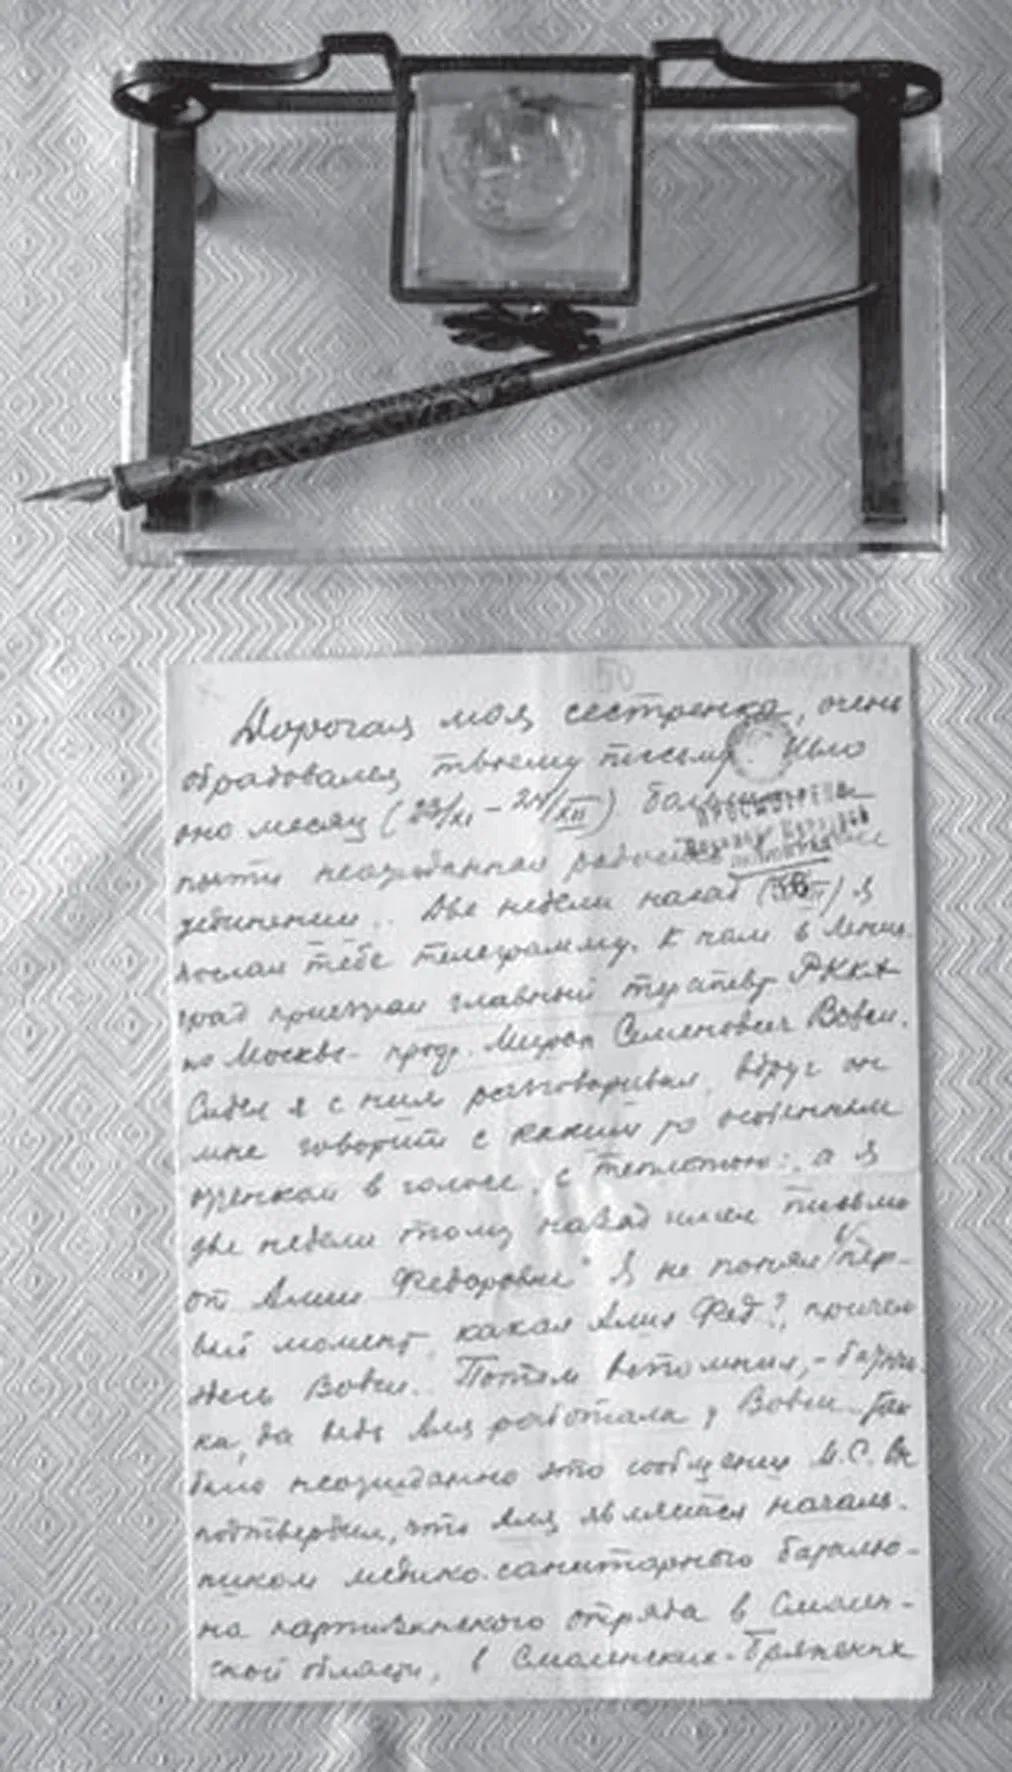 50
Дорогая моя сестренка, очень
обрадовался твоему письму. Шло
оно месяц (23/XI – 24/XII).
ПРОСМОТРЕНО
Военной Цензурой
почти неожиданная
Две недели назад я
послал тебе телеграмму. К нам в Ленин-
град приезжал главный терапевт РККА
из Москвы – проф. Мирон Семенович Вовси.
Сидел я с ним разговаривал, вдруг он
мне говорит с каким то особенным
оттенком в голосе, с теплотою: „а я
две недели тому назад имел письмо
от Алии Федоровны" Я не понял в пер-
вый момент, какая Алия Фед.?, причем
здесь Вовси. Потом вспомнил, –
да ведь Аля работала у Вовси. Так
было неожиданно это сообщение М.С. Он
подтвердил, что Аля является началь-
ником медико-санитарного батальо-
на партизанского отряда в Смолен-
ской области, в Смоленских-Брянских